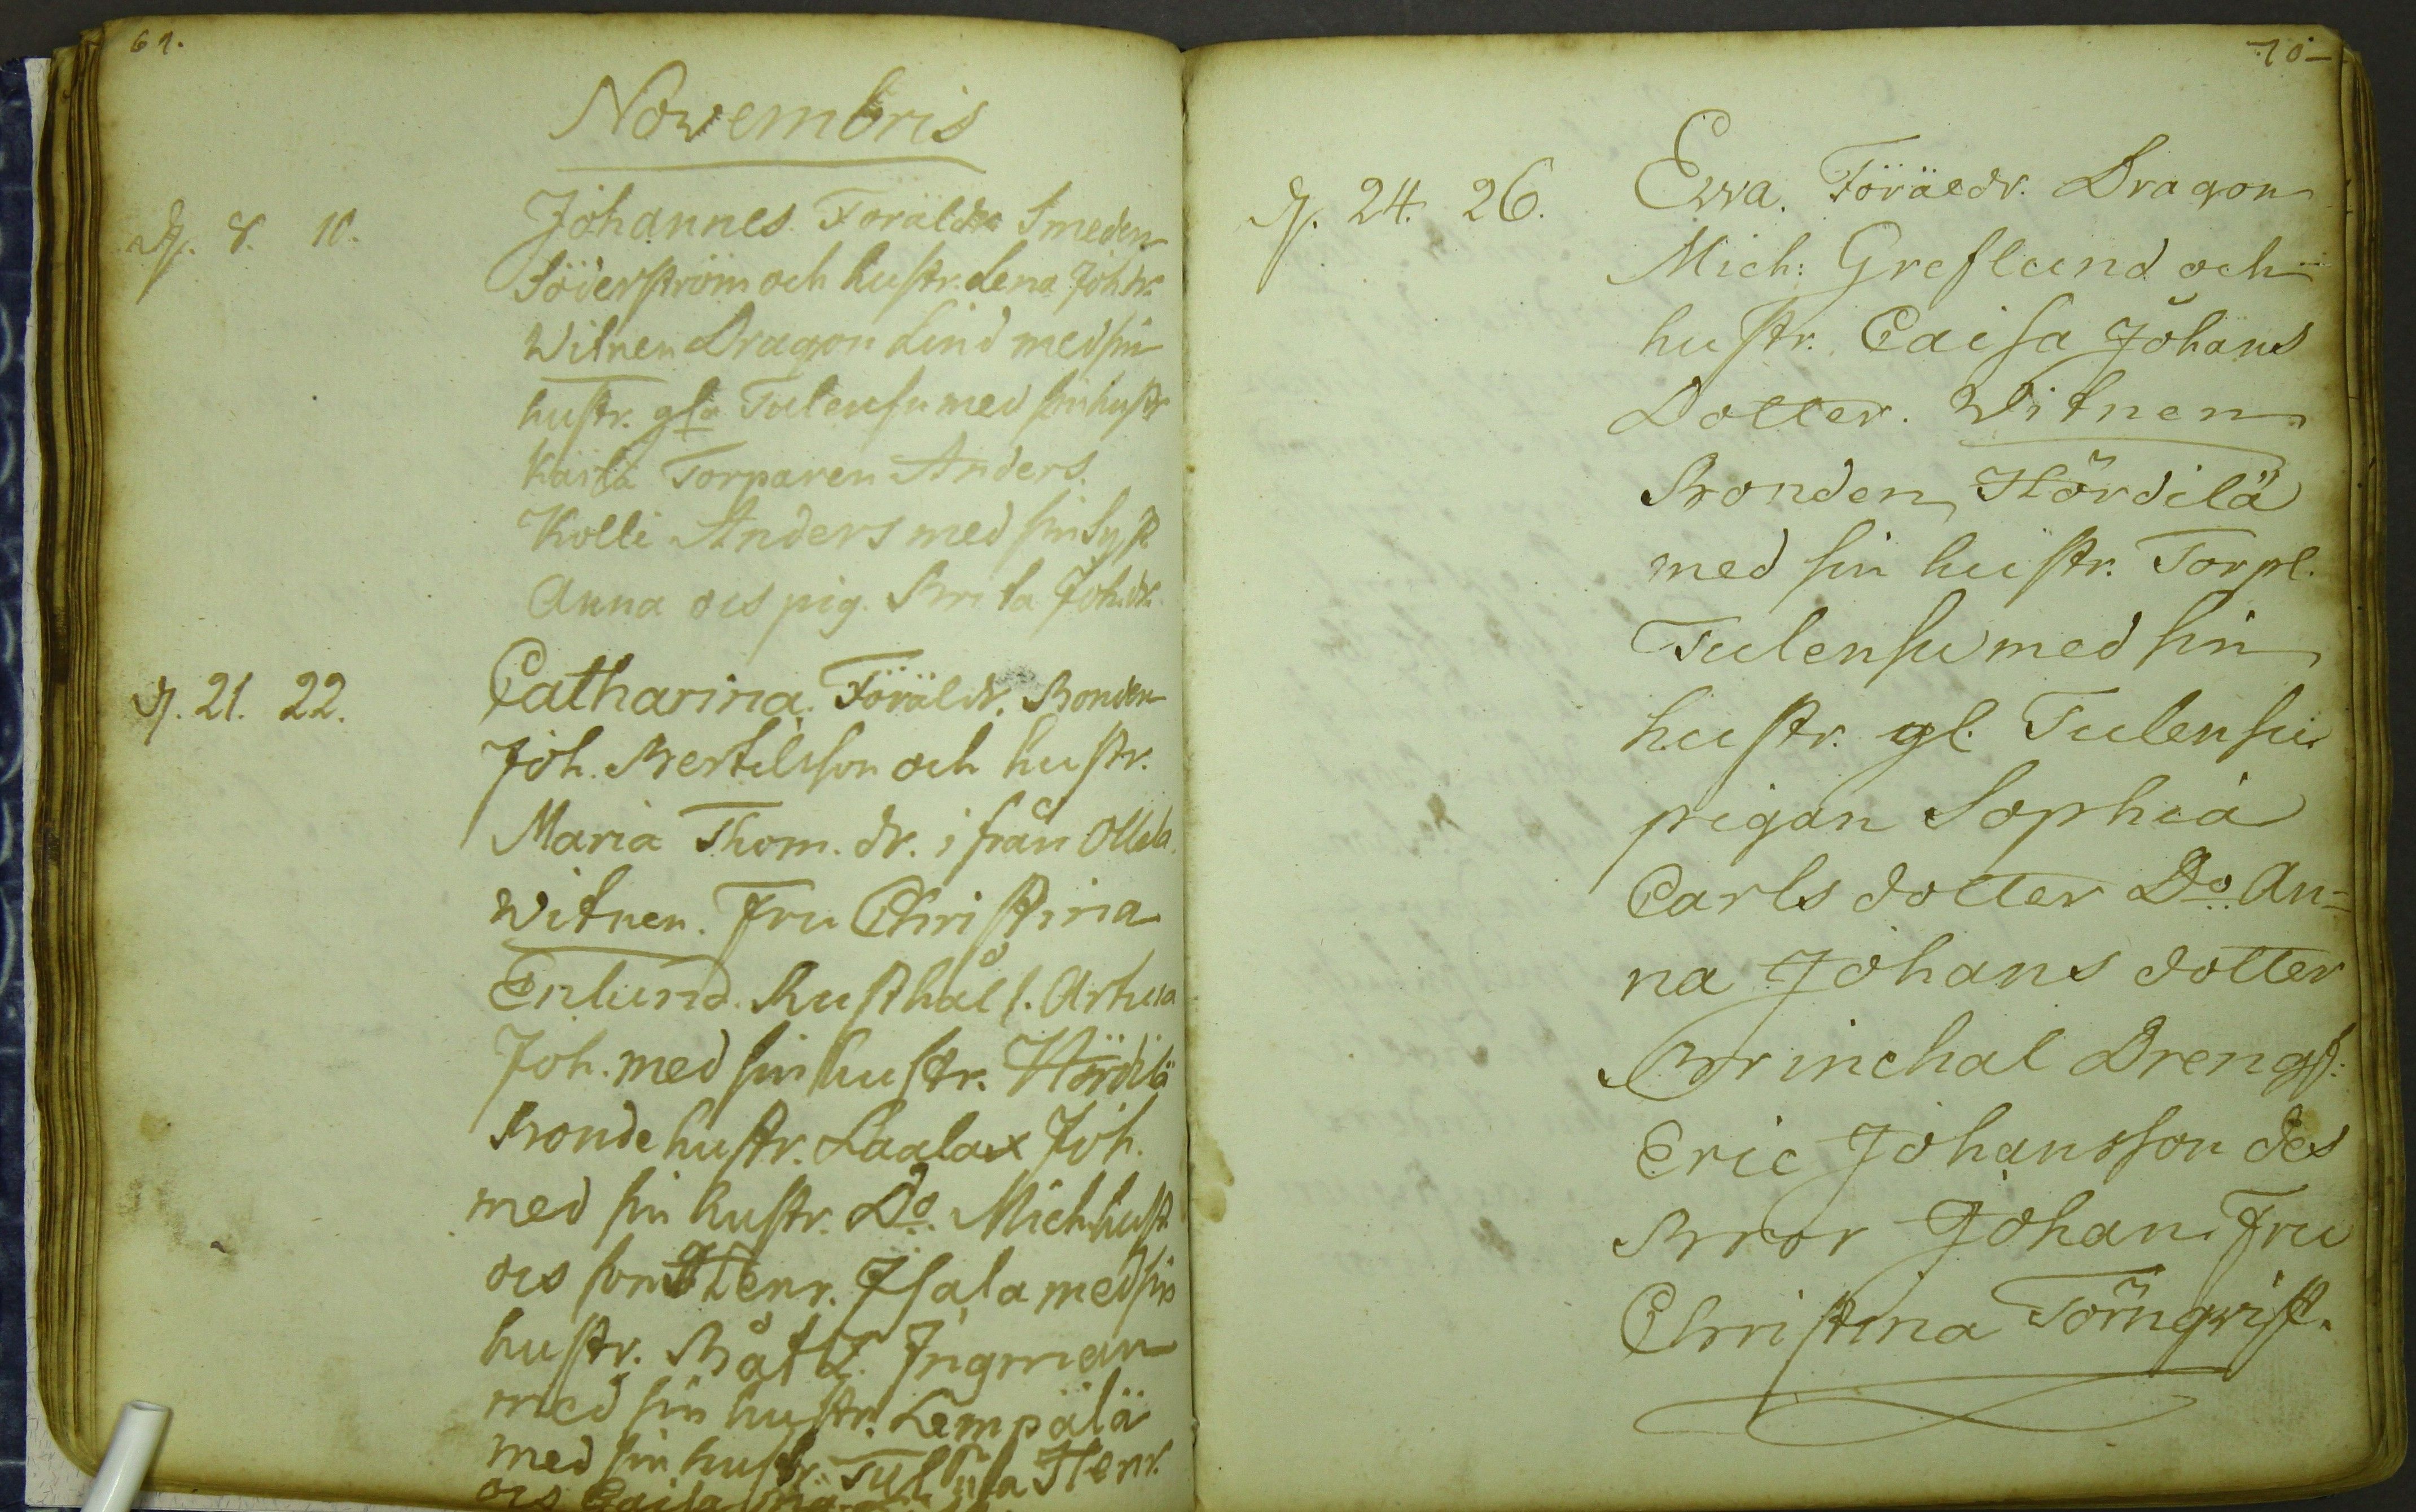 69.
Novembris
D. 8. 10. Johannes. Föräldrar Smeden
Söderström och hustr. Lena Joh. dr.
Witnen Dragon Lind med sin
hustr. gla Tulensu med sin hustr
Kaisa Torparen Anders.
Kolli Anders med sin Syst.
Anna ocs pig. Brita Joh. dr.
D. 21. 22. Catharina. Föräldr. Bonden
Joh. Bertilsson och hustr.
Maria Thom. dr. i från Ollela
Witnen. Fru Christina
Enlund. Rusthåll. Arhua
Joh. med sin hustr. Hördilä
Bonde hustr. Laalax Joh.
med sin hustr. Do. Mich. hust
ocs son Henr. Isala med sin
hustr. Båtz. Ingman
med sin hustr. Lempälä
med sin hustr. Henr.
ocs Caisa
70
D. 24. 26. Ewa. Föräldr. Dragon
Mich: Greflund och
hustr. Caisa Johans
Dotter. Witnen
Bonden Hördilä
med sin hustr. Torpl.
Tulensu med sin
hustr. gl. Tulensu
pigan Sophia
Carls dotter Do. An=
na Johans dotter
Brinchal Drengs:
Eric Johansson des
Bror Johan. Fru
Christina Törnqvist.